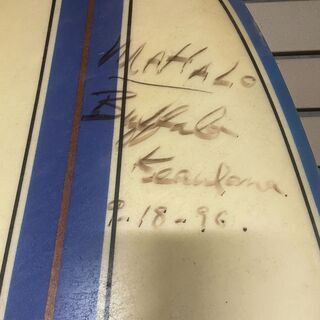 MAHALO
Buffalo
Keaulana
9-18-96.